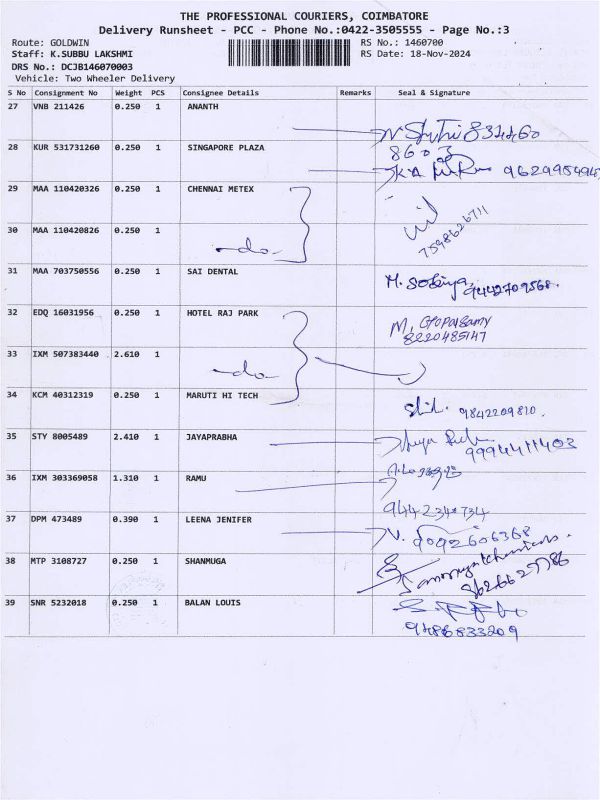 THE PROFESSIONAL COURIERS, COIMBATORE
Delivery Runsheet - PCC - Phone No.:0422-3505555 - Page No.:3
Route: GOLDWIN RS No.: 1460700
Staff: K.SUBBU LAKSHMI RS Date: 18-Nov-2024
DRS No.: DCJB146070003
Vehicle: Two Wheeler Delivery
S No Consignment No Weight PCS Consignee Details Remarks Seal & Signature
27 VNB 211426 0.250 1 ANANTH
28 KUR 531731260 0.250 1 SINGAPORE PLAZA
29 MAA 110420326 0.250 1 CHENNAI METEX
7598626711
30 MAA 110420826 0.250 1
-do-
31 MAA 703750556 0.250 1 SAI DENTAL
M. Sobiya 9442709568.
32 EDQ 16031956 0.250 1 HOTEL RAJ PARK
M. Gopalsamy
8220485147
33 IXM 507383440 2.610 1
-do-
34 KCM 40312319 0.250 1 MARUTI HI TECH
9842209810.
35 STY 8005489 2.410 1 JAYAPRABHA
9994411403
36 IXM 303369058 1.310 1 RAMU
944234734
37 DPM 473489 0.390 1 LEENA JENIFER
9092606368
38 MTP 3108727 0.250 1 SHANMUGA
39 SNR 5232018 0.250 1 BALAN LOUIS
9486833209